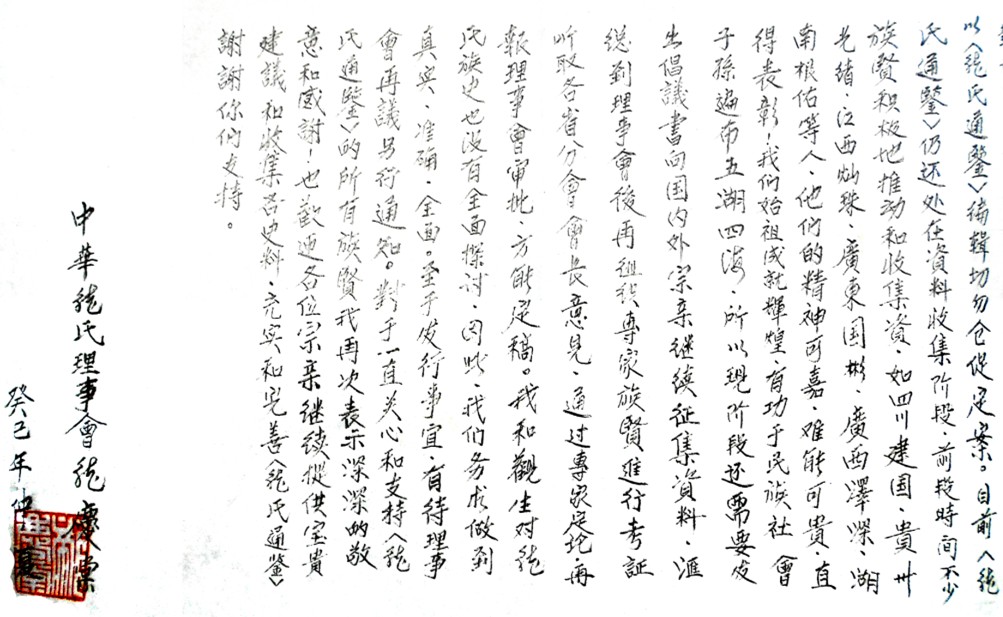 以《龍氏通鑒》编輯切勿仓促定案。目前《龍
氏通鑒》仍还处在資料收集阶段，前段時间不少
族賢积极地推动和收集資，如四川建国，贵州
光绪，江西灿珠，廣東国彬，廣西澤深，湖
南根佑等人，他们的精神可嘉，难能可貴，直
得表彰！我们始祖成就輝煌，有功于民族社會
子孫遍布五湖四海，所以现阶段还需要发
出倡議書向国内外宗亲继续征集資料，滙
总到理事會後再组织專家族賢進行考証
听取各省分會會長意見，通过專家定论，再
報理事會审批，方能定稿。我和觀生对龍
氏族史也没有全面探讨，因此，我们务求做到
真实、准确、全面。至于发行事宜，有待理事
會再議另行通知。對于一直关心和支持《龍
氏通鑒》的所有族贤我再次表示深深的敬
意和感谢！也歡迎各位宗亲继续提供宝貴
建議和收集各史料，充实和完善《龍氏通鑒》
謝謝你们支持。
中華龍氏理事會龍慶棠
癸巳年仲夏